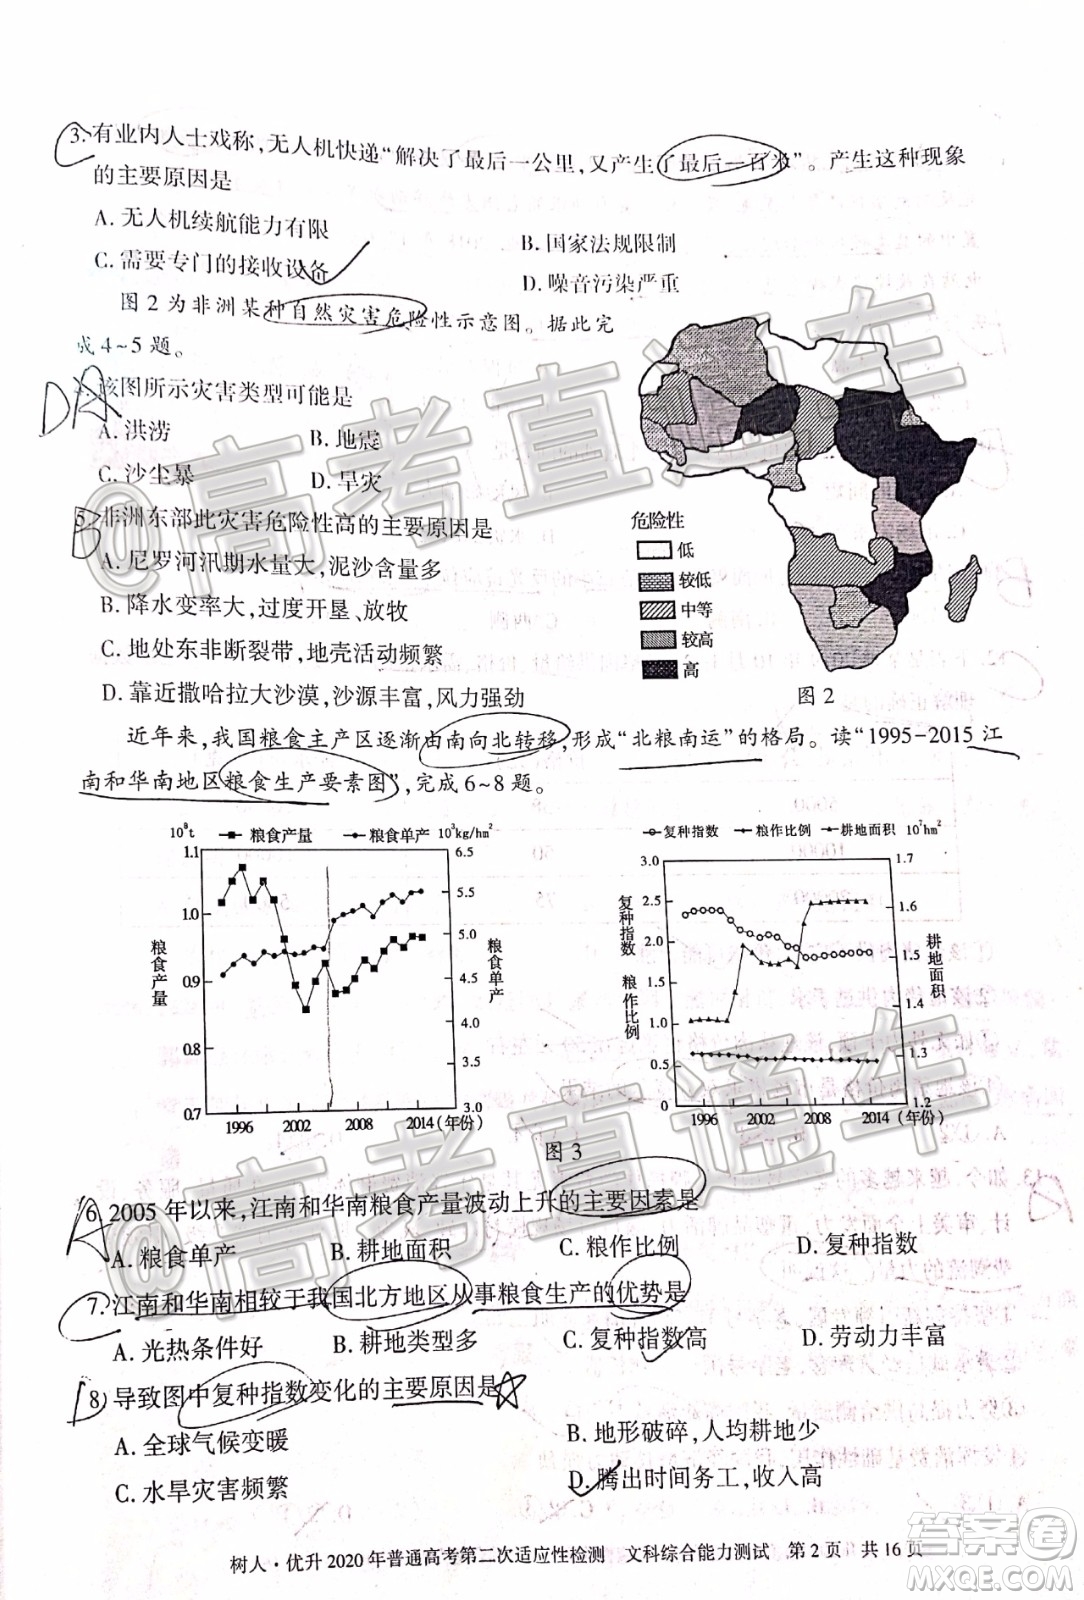 3. 有业内人士戏称,无人机快递“解决了最后一公里,又产生了最后一百米”。产生这种现象
的主要原因是
A. 无人机续航能力有限
B. 国家法规限制
C. 需要专门的接收设备
D. 噪音污染严重
图2为非洲某种自然灾害危险性示意图。据此完
成4~5题。
DA
该图所示灾害类型可能是
A. 洪涝
B. 地震
C. 沙尘暴
D. 旱灾
5. 非洲东部此灾害危险性高的主要原因是
B
A. 尼罗河汛期水量大,泥沙含量多
B. 降水变率大,过度开垦、放牧
C. 地处东非断裂带,地壳活动频繁
D. 靠近撒哈拉大沙漠,沙源丰富,风力强劲
危险性
低
较低
中等
较高
高
图2
近年来,我国粮食主产区逐渐由南向北转移,形成“北粮南运”的格局。读“1995-2015江
南和华南地区粮食生产要素图”,完成6~8题。
10⁸t
粮食产量
粮食单产
10³kg/hm²
1.1
1.0
0.9
0.8
0.7
6.5
5.5
5.0
4.5
4.0
3.5
3.0
粮食产量
粮食单产
1996
2002
2008
2014(年份)
复种指数
粮作比例
耕地面积
10⁷hm²
3.0
2.5
2.0
1.5
1.0
0.5
0
1.7
1.6
1.5
1.4
1.3
1.2
复种指数
粮作比例
耕地面积
1996
2002
2008
2014(年份)
图3
A
6. 2005年以来,江南和华南粮食产量波动上升的主要因素是
A. 粮食单产
B. 耕地面积
C. 粮作比例
D. 复种指数
7. 江南和华南相较于我国北方地区从事粮食生产的优势是
A. 光热条件好
B. 耕地类型多
C. 复种指数高
D. 劳动力丰富
D
8. 导致图中复种指数变化的主要原因是
A. 全球气候变暖
B. 地形破碎,人均耕地少
C. 水旱灾害频繁
D. 腾出时间务工,收入高
树人·优升2020年普通高考第二次适应性检测 文科综合能力测试 第2页 共16页
@高考直通车
@高考直通车
答案卷
MXQE.COM